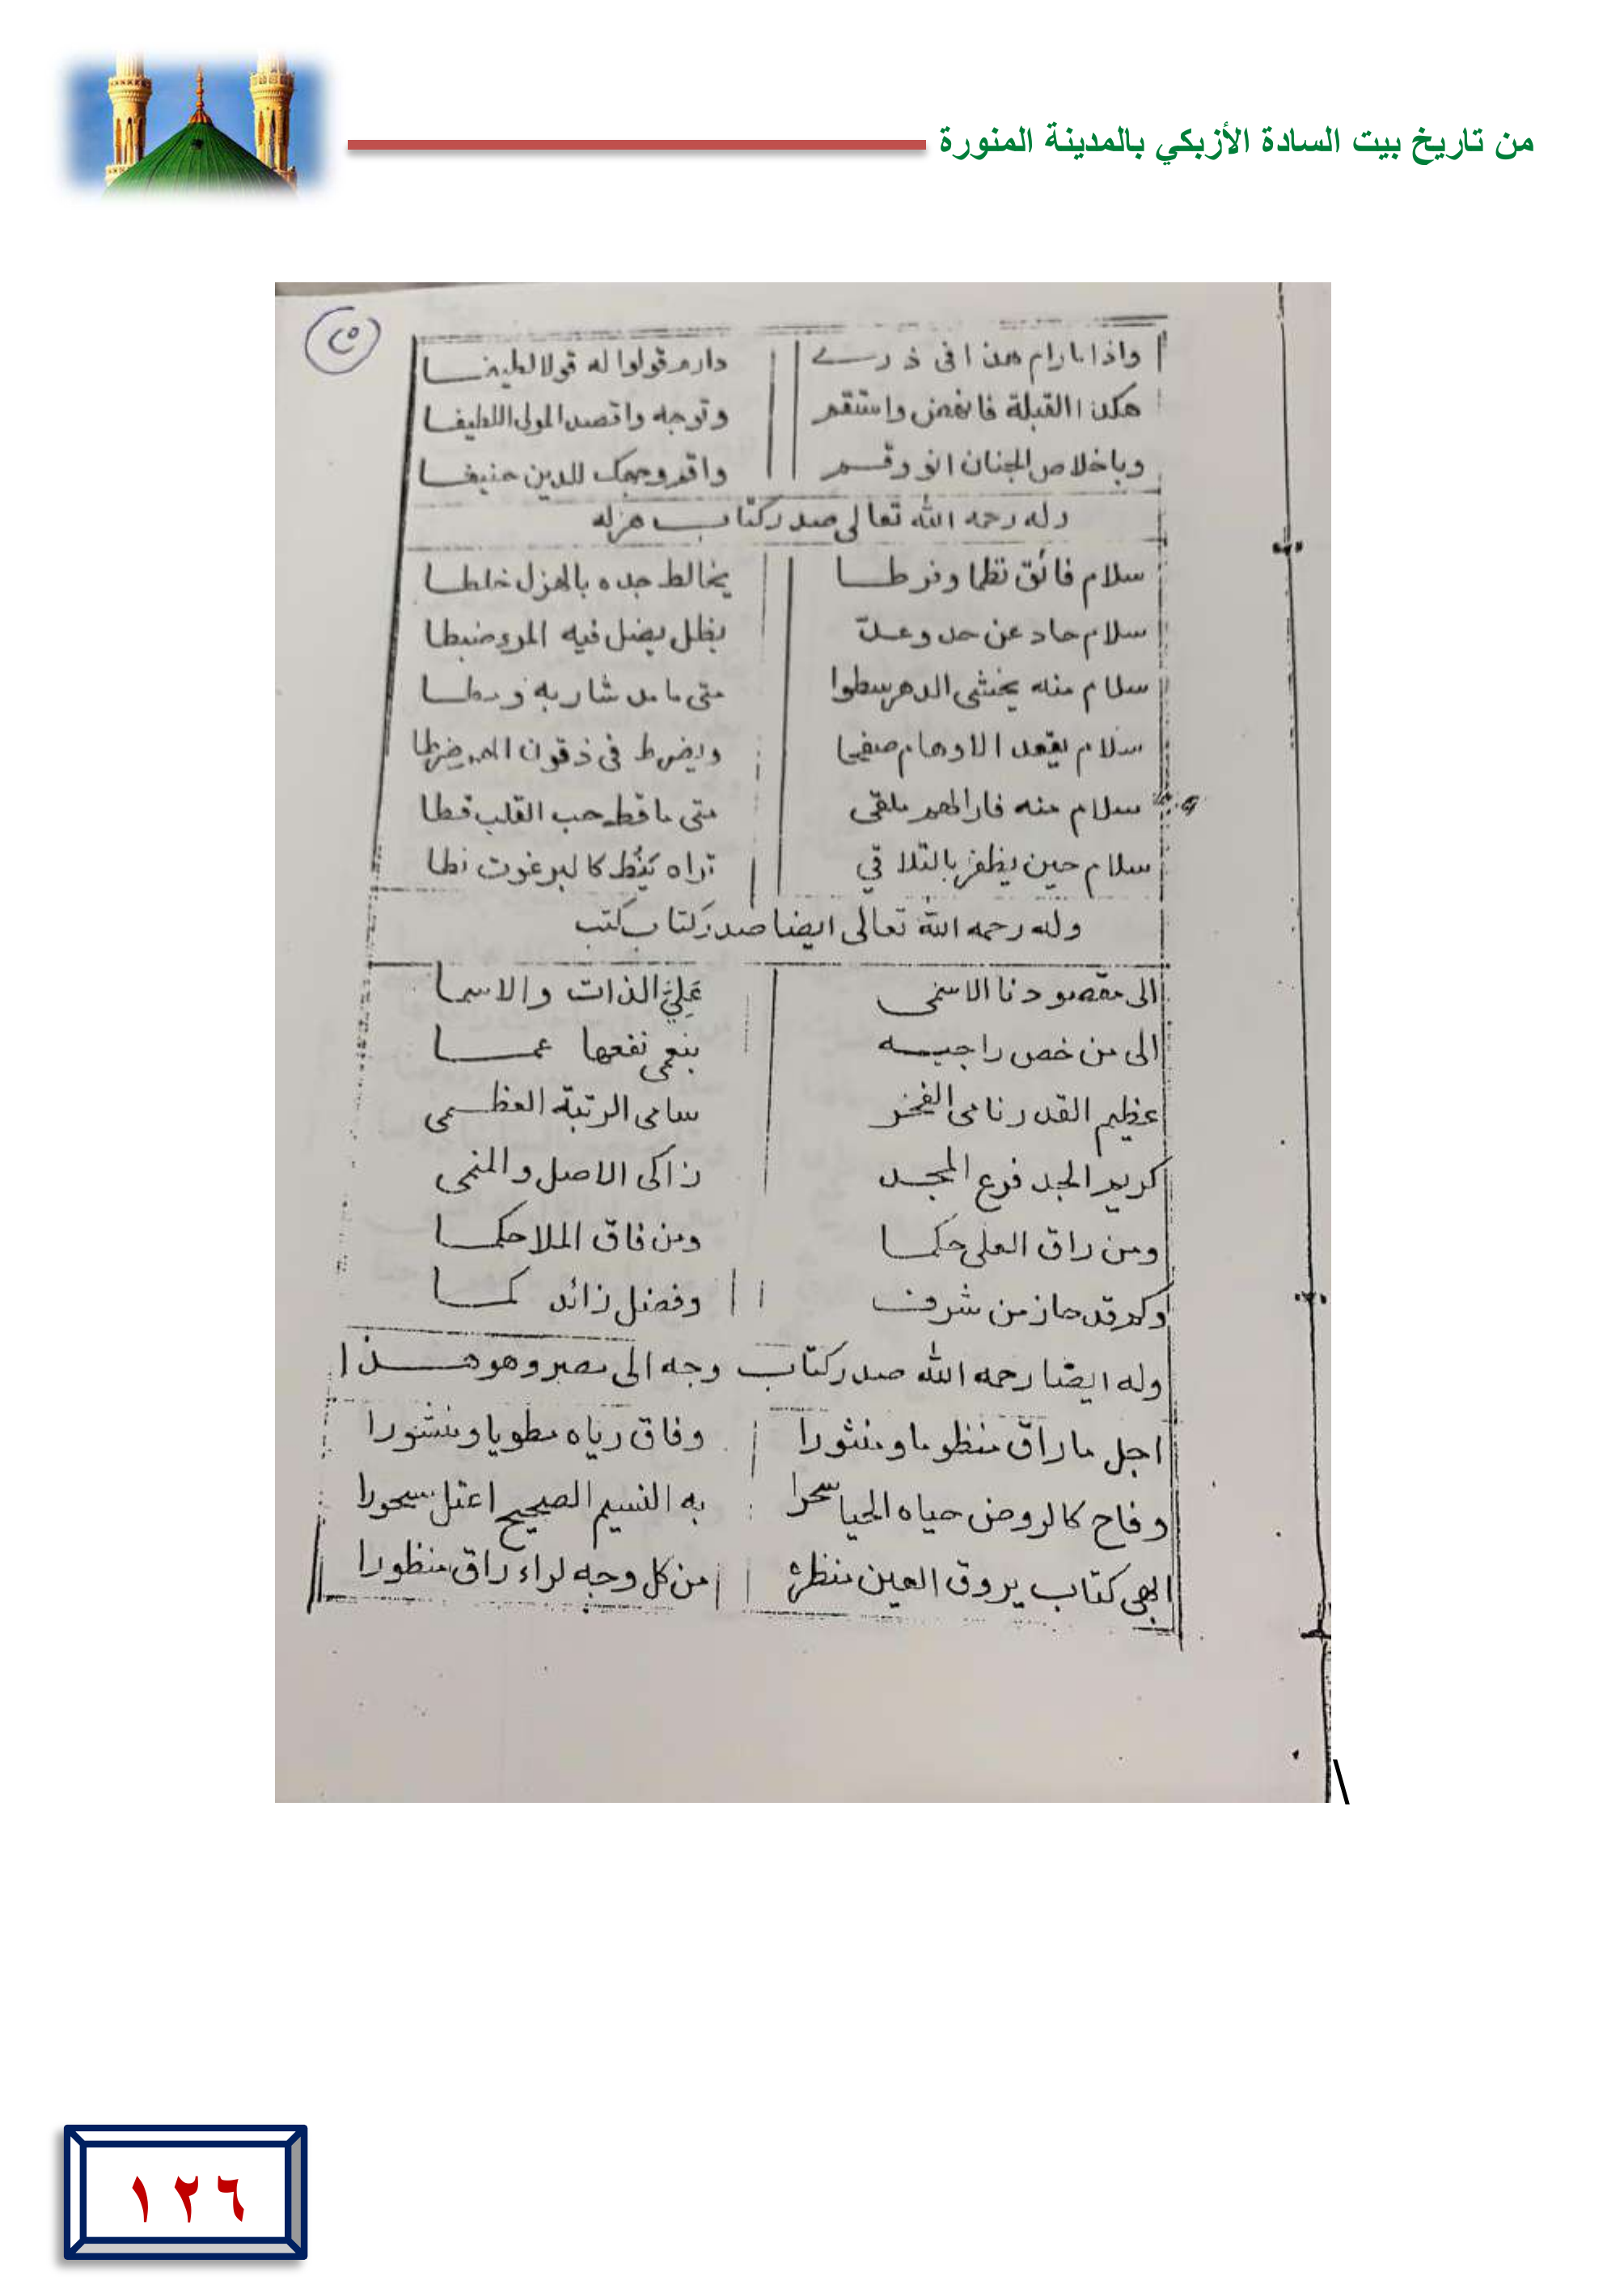 من تاريخ بيت السادة الأزبكي بالمدينة المنورة
٢٥
واذا ما رام هذا في ذرى دارم قولوا له قولا لطيفا
هكذا القبلة فانهض واستقم وتوجه واقصد المولى اللطيفا
وباخلاص الجنان انو وقم واقم وجهك للدين حنيفا
وله رحمه الله تعالى صدر كتاب هزله
سلام فائق نظما وفرطا يخالط جده بالهزل خلطا
سلام حاد عن حد وعد يظل يضل فيه المرء ضبطا
سلام منه يخشى الدهر سطوا متى ما مد شاربه ومطا
سلام يقعد الاوهام صفيها ويضرط في ذقون الهم ضرطا
سلام منه فار الهم ملقى متى ما قط حب القلب قطا
سلام حين يظفر بالتلاقي تراه ينُط كالبرغوت نطا
وله رحمه الله تعالى ايضا صدر كتاب كتب
الى مقصودنا الاسمى عَلِيّ الذات والاسما
الى من خص راجيه بنعمى نفعها عما
عظيم القدر نامى الفخر سامى الرتبة العظمى
كريم الجد فرع المجد زاكى الاصل والمنمى
ومن راق العلى حكما ومن فاق الملا حكما
وكم قد حاز من شرف وفضل زائد كما
وله ايضا رحمه الله صدر كتاب وجه الى مصر وهو هذا
اجل ما راق منظوما ومنثورا وفاق رياه مطويا ومنشورا
وفاح كالروض حياه الحيا سحرا به النسيم الصحيح اعتل سحورا
ابهى كتاب يروق العين منظره من كل وجه لراء راق منظورا
\
١٢٦